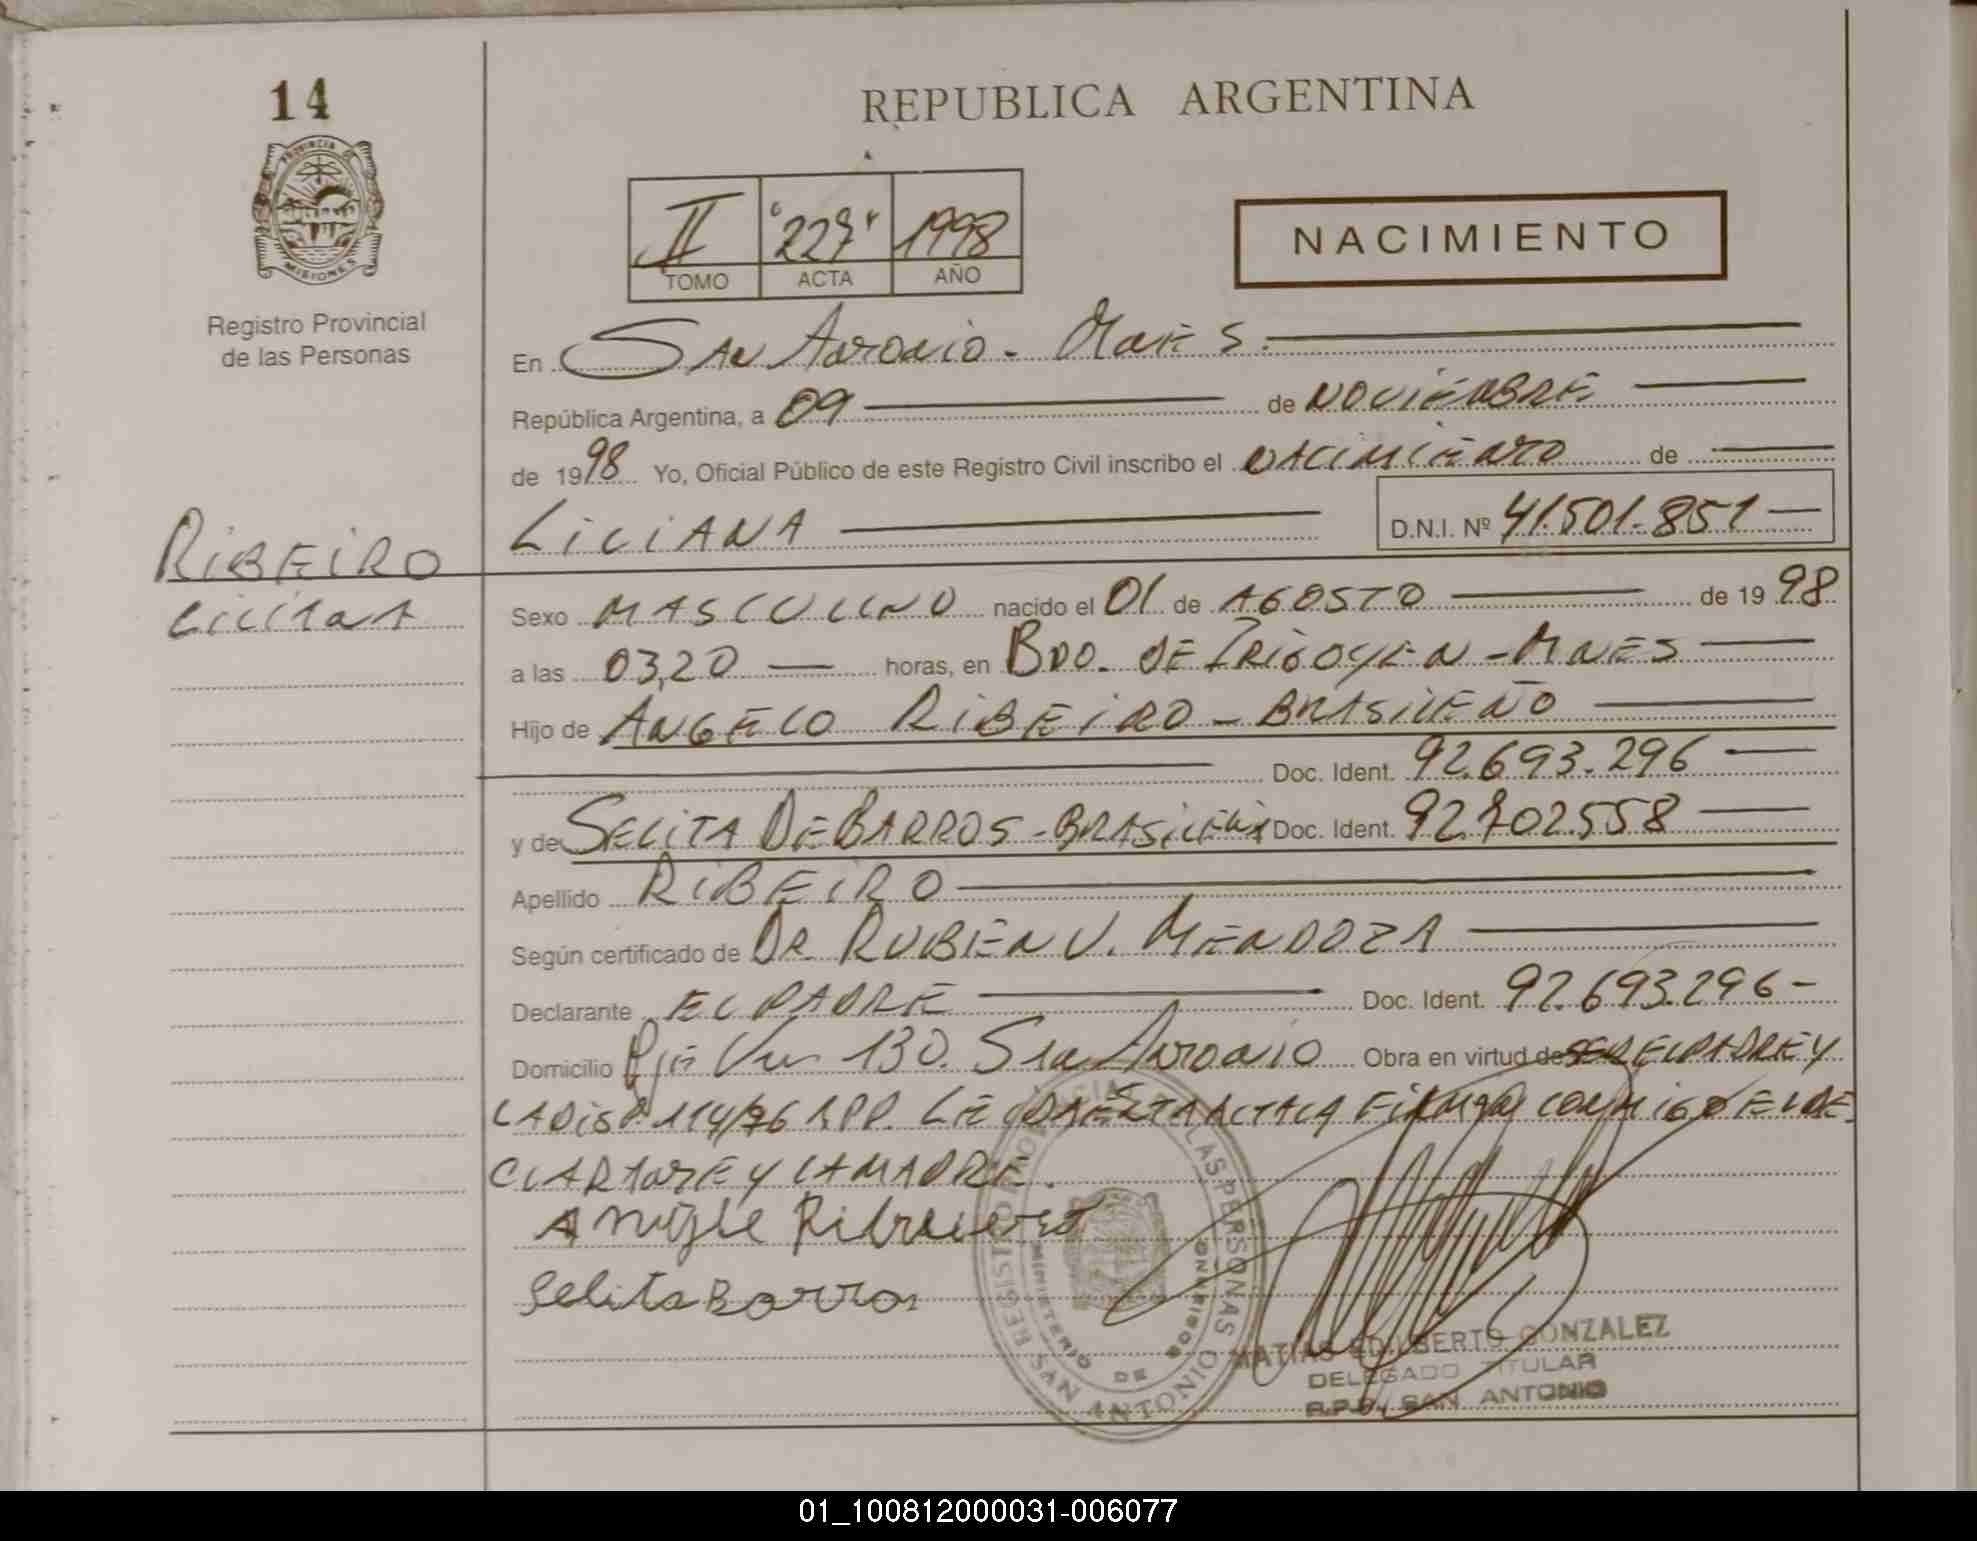 14
PROVINCIA DE
MISIONES
Registro Provincial
de las Personas
REPUBLICA ARGENTINA
II 1998
TOMO ACTA AÑO
NACIMIENTO
En SAN ANTONIO - MNES
República Argentina, a 09 de NOVIEMBRE
de 1998 Yo, Oficial Público de este Registro Civil inscribo el NACIMIENTO de
LILIANA D.N.I. Nº 41.501.851
RIBEIRO
LILIANA
Sexo MASCULINO nacido el 01 de AGOSTO de 1998
a las 03,20 horas, en BDO. DE IRIGOYEN - MNES
Hijo de ANGELO RIBEIRO - BRASILEÑO
Doc. Ident. 92.693.296
y de SELITA DE BARROS - BRASILEÑA Doc. Ident. 92.702.558
Apellido RIBEIRO
Según certificado de DR. RUBEN V. MENDOZA
Declarante EL PADRE Doc. Ident. 92.693.296
Domicilio 130. SAN ANTONIO Obra en virtud de SER EL PADRE Y
LA DISP. 114/76 RPP. LEIDA ESTA ACTA LA FIRMAN CONMIGO EL DE
CLARANTE Y LA MADRE.
Selita Barros
REGISTRO PROVINCIAL DE LAS PERSONAS
MINISTERIO DE GOBIERNO
SAN ANTONIO
MATIAS EDILBERTO GONZALEZ
DELEGADO TITULAR
R.P.P. SAN ANTONIO
01_100812000031-006077